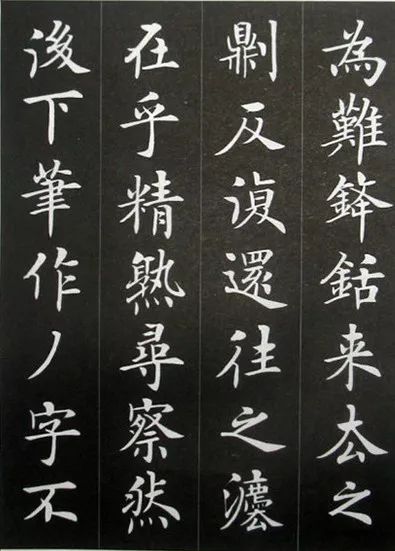 為難鋒銛来厺之
則反復還往之灋
在乎精熟尋察然
後下筆作丿字不